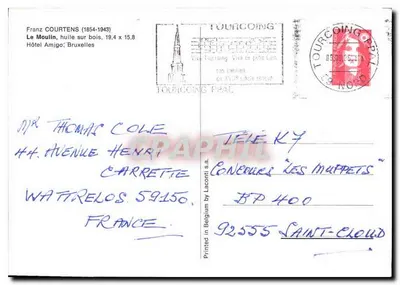 Franz COURTENS (1854-1943)
Le Moulin, huile sur bois, 19,4 x 15,8
Hôtel Amigo, Bruxelles
TOURCOING
TOURCOING PPAL
TOURCOING PPAL
NORD
MR THOMAS COLE
44. AVENUE HENRI
CARRETTE
WATTRELOS 59150.
FRANCE.
Printed in Belgium by Laconti s.a.
TELE K7
CONCOURS "LES MUPPETS"
BP 400
92555 SAINT-CLOUD